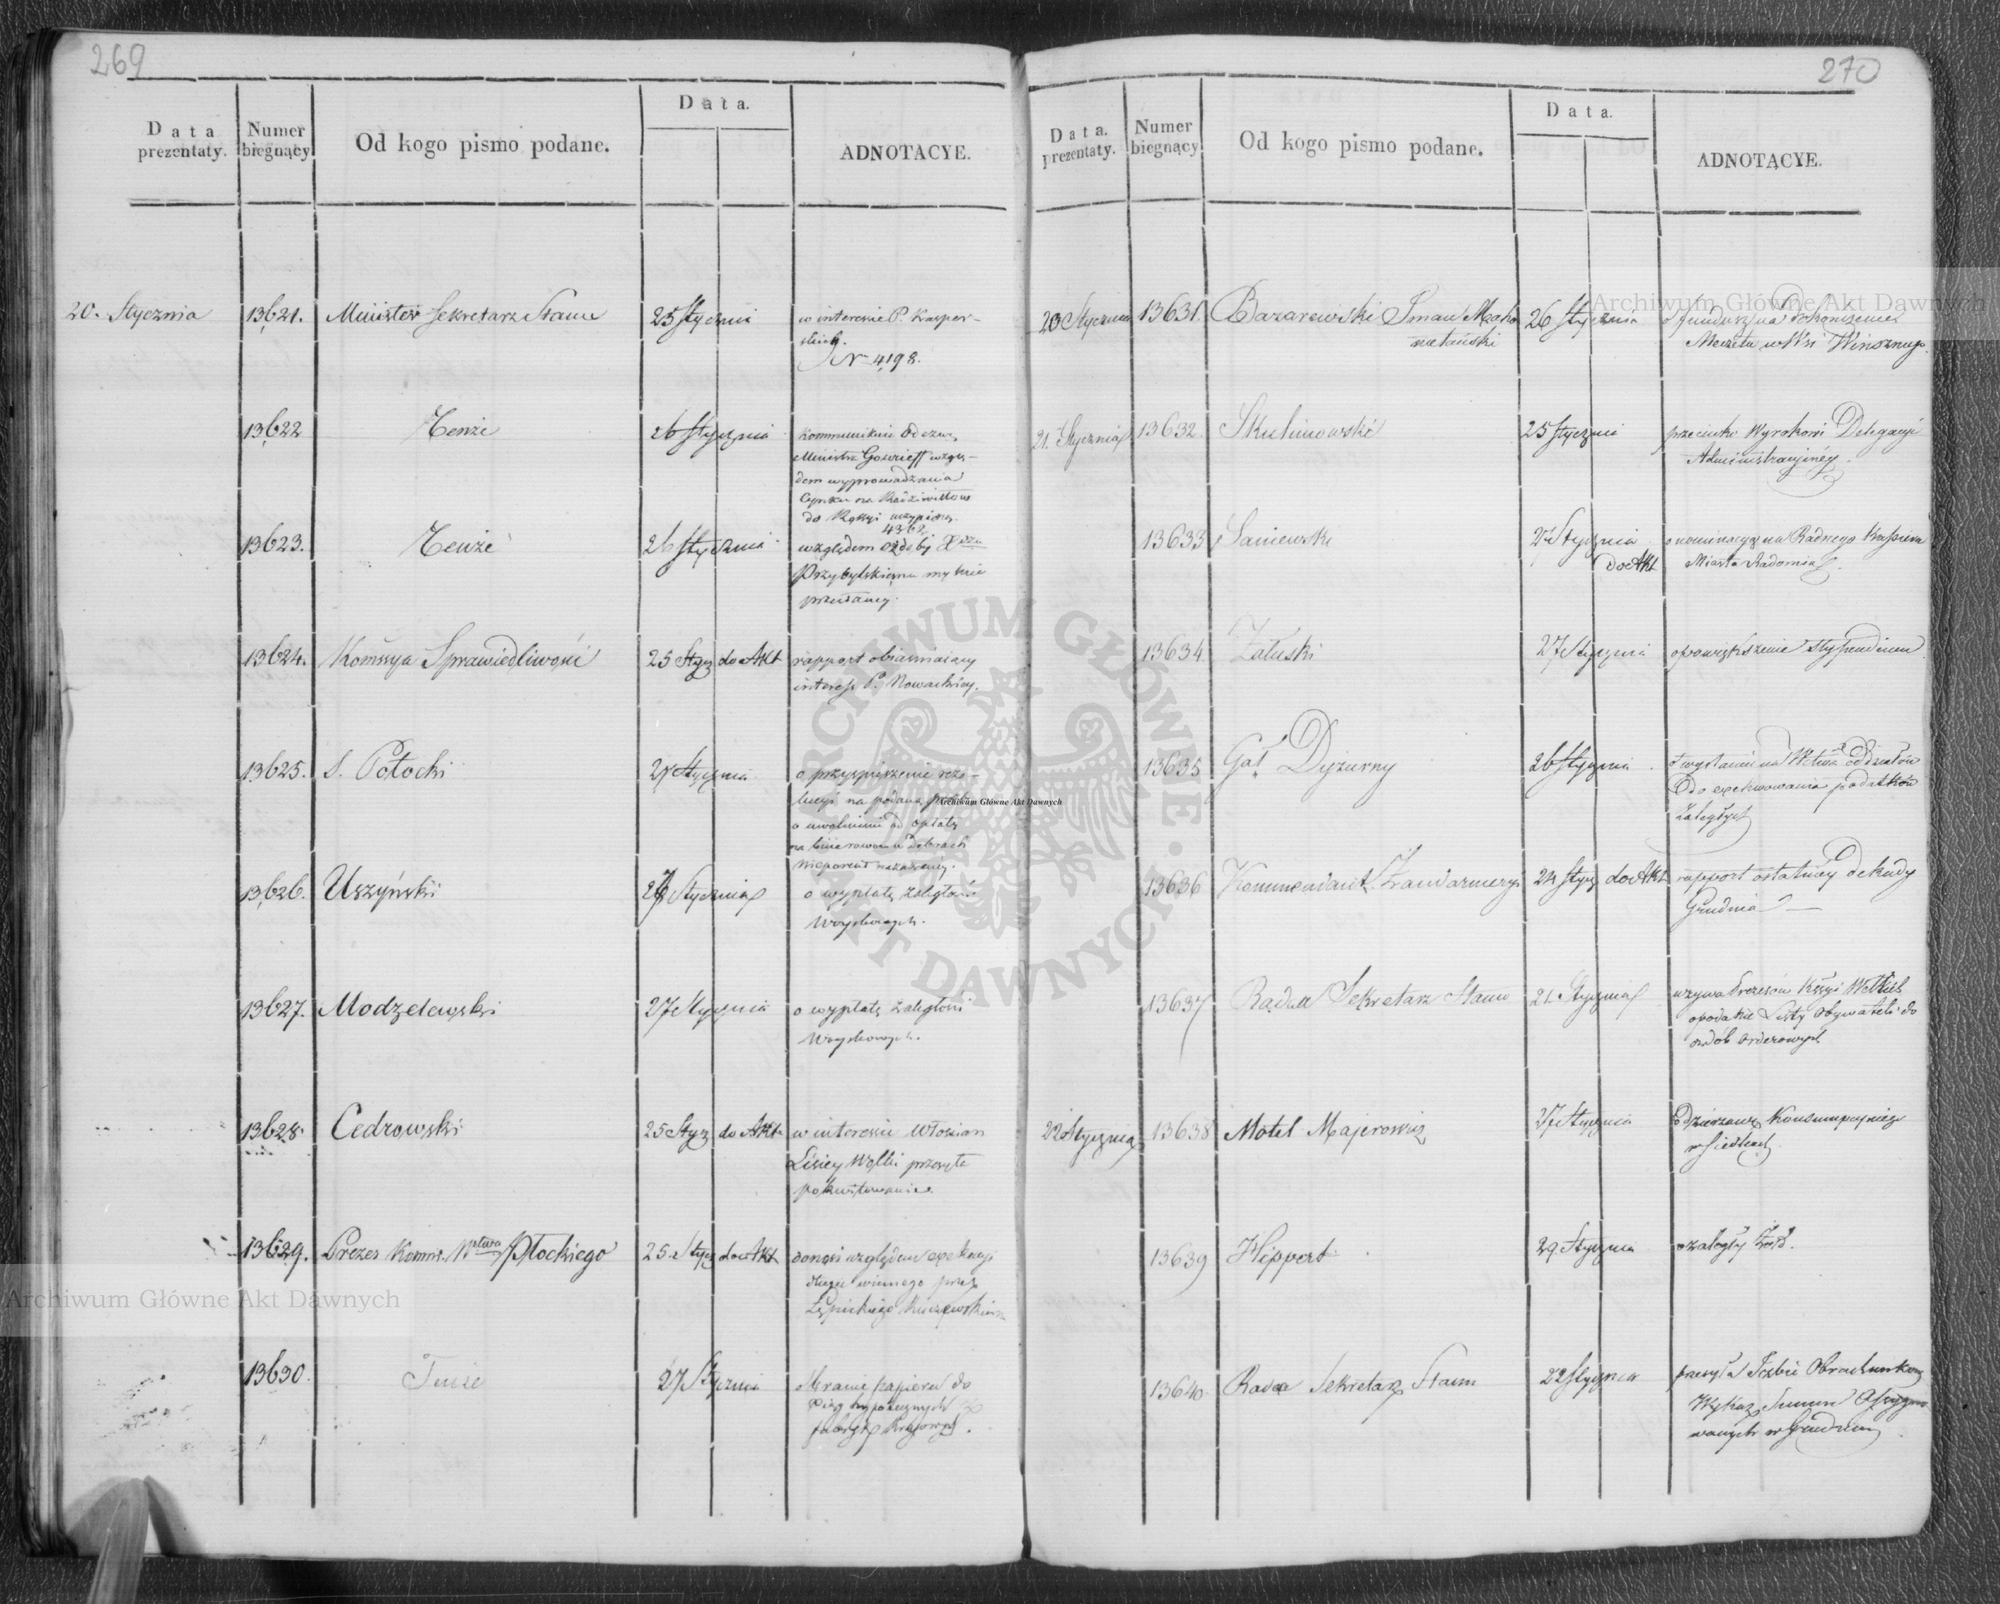 269
Data prezentaty.
Numer biegnący
Od kogo pismo podane.
Data.
ADNOTACYE.
20. Stycznia 13621. Minister Sekretarz Stanu 25 Stycznia w interesie P. Kasper-
skich.
N 4198.
13622 Tenże 26 Stycznia kommunikuie odezwę
Ministra względem
wyprowadzania
Cynku na
do
4362.
13623. Tenże 26 Stycznia względem ozdoby Xdzu
Przybylskiemu mylnie
przesłaney.
13624. Komssya Sprawiedliwości 25 Stycz do Akt rapport obiaśniaiący
interess P. Nowackiey.
13625. S. Potocki 27 Stycznia o przyspieszenie rezo-
lucyi na podaną prośbę
o uwolnienie od opłaty
w Dobrach
Nieporent
13626. Uszyński 27 Stycznia o wypłatę zaległości
Woyskowych.
13627. Modzelewski 27 Stycznia o wypłatę zaległości
Woyskowych.
13628. Cedrowski 25 Stycz do Akt. w interesie Włościan
Lisiey Wolki przesyła
pokwitowanie.
13629. Prezes Komms. Wdztwa Płockiego 25 Stycz do Akt donosi względem exekucyi
długu winnego przez
13630. Tenże 27 Stycznia o branie papieru do
Xiąg hypotecznych z
fabryk Kraiowych.
270
Data. prezentaty.
Numer biegnący
Od kogo pismo podane.
Data.
ADNOTACYE.
20 Stycznia 13631. Bazarewski Iman Macho-
metański 26 Stycznia o fundusz na dokończenie
Meczetu w Wsi Winsznupe.
21. Stycznia 13632. Skulimowski 25 Stycznia przeciwko Wyrokowi Delegacyi
Administracyiney.
13633 Saniewski 27 Stycznia o nominacyę na Radnego Kassiera
do Akt Miasta Radomia.
13634. Załuski 27 Stycznia o powiększenie stypendium
13635 Gał Dyżurny 26 Stycznia o wysłaniu na oddziałów
do exekwowania podatków
zaległych
13636 Kommendant Żandarmeryi 24 Stycz do Akt rapport ostatniey dekady
Grudnia
13637 Radca Sekretarz Stanu 21. Stycznia wzywa Prezesów Kssyi Wdzkich
o podanie Listy Obywateli do
ozdób orderowych
22 Stycznia 13638 Motel Majerowicz 27 Stycznia o dzierżawę Konsumpcyinego
w Siedlcach
13639 Hippert 29 Stycznia o zaległy żołd.
13640. Radca Sekretarz Stanu 22 Stycznia przesyła Izbie Obrachunkowey
Wykaz Summ Assygno-
wanych w Grudniu
Archiwum Główne Akt Dawnych
Archiwum Główne Akt Dawnych
Archiwum Główne Akt Dawnych
ARCHIWUM GŁÓWNE AKT DAWNYCH